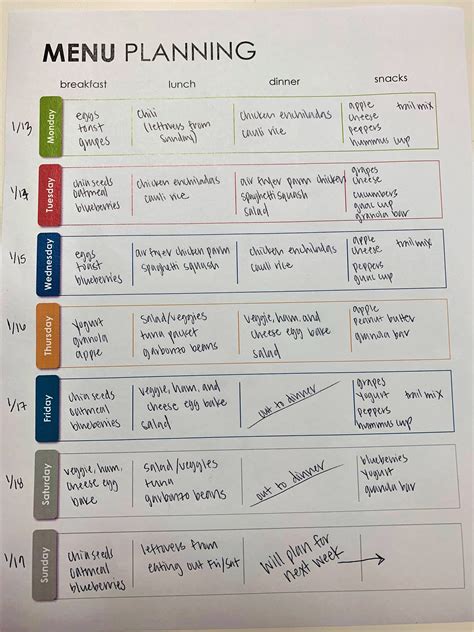 MENU PLANNING
breakfast lunch dinner snacks
1/13
Monday
eggs
toast
grapes
chili
(leftovers from
Sunday)
chicken enchiladas
cauli rice
apple trail mix
cheese
peppers
hummus cup
Tuesday
chia seeds
oatmeal
blueberries
chicken enchiladas
cauli rice
air fryer parm chicken
spaghetti squash
salad
grapes
cheese
cucumbers
guac cup
granola bar
1/15
Wednesday
eggs
toast
blueberries
air fryer chicken parm
spaghetti squash
chicken enchiladas
cauli rice
apple trail mix
cheese
peppers
guac cup
1/16
Thursday
yogurt
granola
apple
salad/veggies
tuna packet
garbonzo beans
veggie, ham, and
cheese egg bake
salad
apple
peanut butter
granula bar
1/17
Friday
chia seeds
oatmeal
blueberries
veggie, ham, and
cheese egg bake
salad
out to dinner
grapes
yogurt trail mix
peppers
hummus cup
1/18
Saturday
veggie, ham,
cheese egg
bake
salad/veggies
tuna
garbonzo beans
out to dinner
blueberries
yogurt
granula bar
Sunday
chia seeds
oatmeal
blueberries
leftovers from
eating out Fri/Sat
will plan for
next week